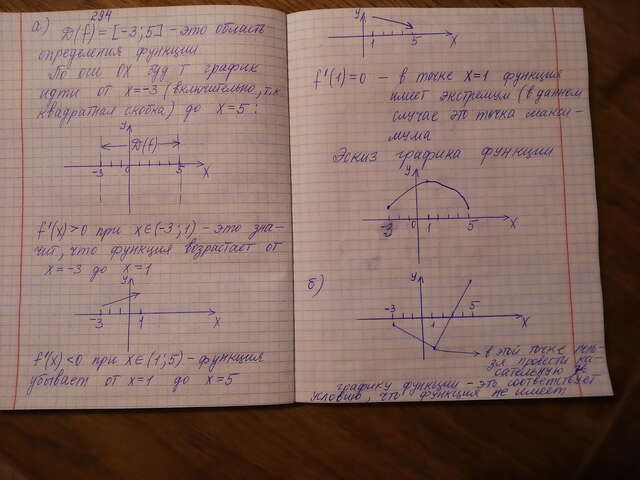 294
а) D(f) = [-3; 5] - это область
определения функции.
По оси ОХ буд т график
идти от x=-3 (включительно, т.к.
квадратная скобка) до x=5:
y
D(f)
-3 0 5 x
f'(x)>0 при x∈(-3; 1) - это зна-
чит, что функция возрастает от
x=-3 до x=1
y
-3 1 x
f'(x)<0 при x∈(1; 5) - функция
убывает от x=1 до x=5
y
1 5 x
f'(1)=0 - в точке x=1 функция
имеет экстремум (в данном
случае это точка макси-
мума
Эскиз графика функции
y
-3 0 1 5 x
б)
y
-3 1 5 x
в этой точке нель-
зя провести ка-
сательную к
графику функции - это соответствует
условию, что функция не имеет